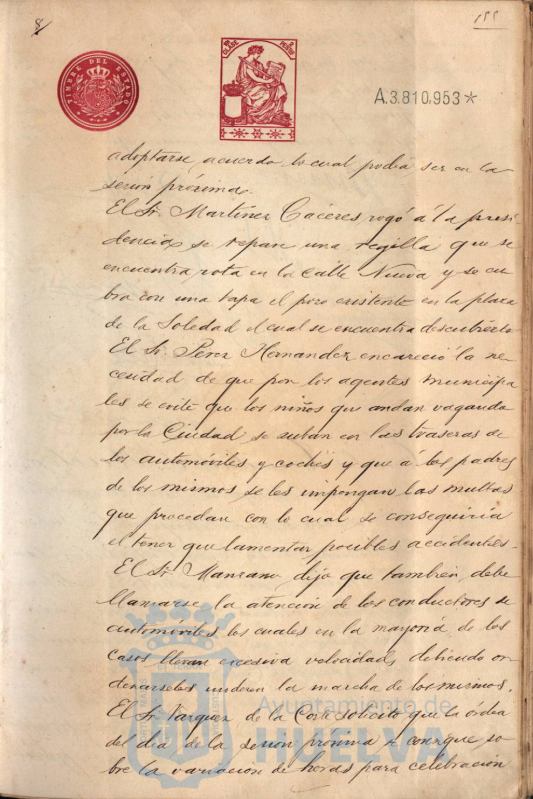 8
TIMBRE DEL ESTADO
CLASE
A.3.810.953*
adoptarse acuerdo lo cual podia ser en la
sesion próxima.
El Sr. Martinez Caceres rogó á la presi
dencia se repare una regilla que se
encuentra rota en la Calle Nueva y se cu
bra con una tapa el pozo existente en la plaza
de la Soledad el cual se encuentra descubierto
El Sr. Perez Hernandez encareció la ne-
cesidad de que por los agentes municipa-
les se evite que los niños que andan vagando
por la Ciudad se suban en las traseras de
los automóviles y coches y que á los padres
de los mismos se les impongan las multas
que procedan con lo cual se conseguiria
el tener que lamentar posibles accidentes.
El Sr. Manzano dijo que tambien debe
llamarse la atención de los conductores de
automóviles, los cuales en la mayoria de los
casos llevan excesiva velocidad, debiendo or
denarseles moderen la marcha de los mismos.
El Sr. Vazquez de la Corte solicitó que la órden
del dia de la sesion proxima se consigne so-
bre la variacion de horas para celebración
Ayuntamiento de
HUELVA